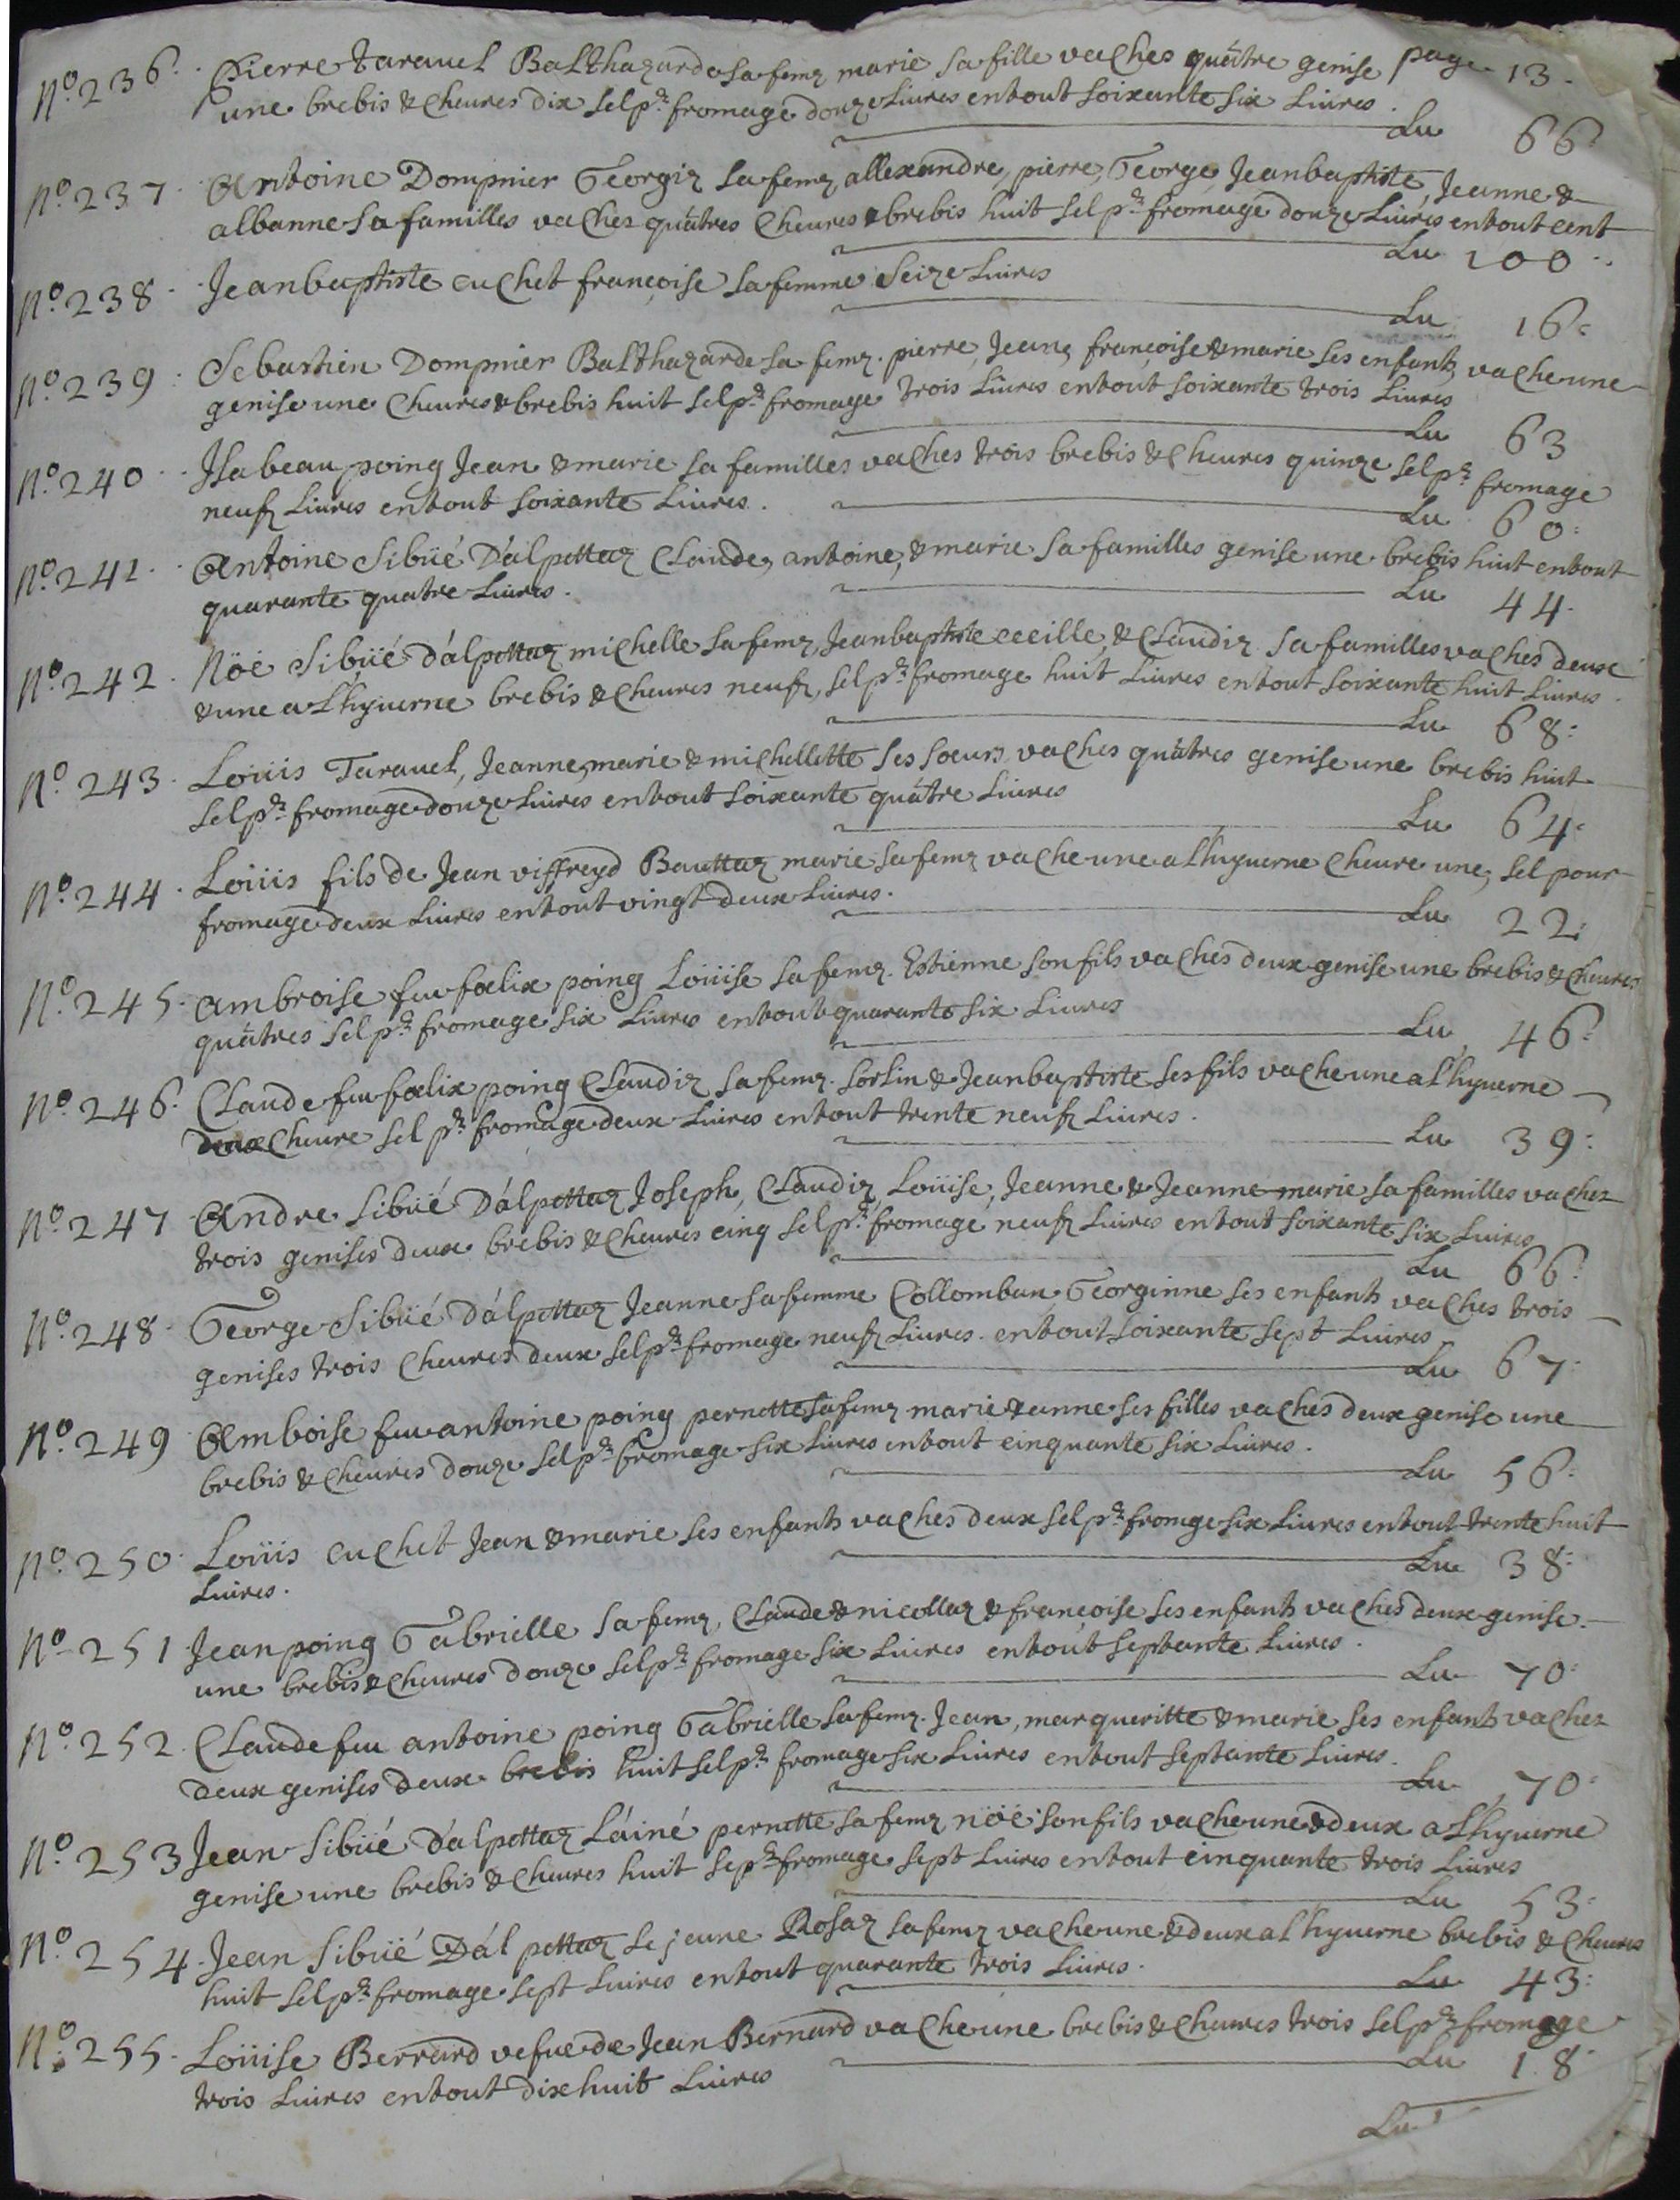 page 13.
N.o 236. Pierre Taravel Balthazarde sa femz marie sa fille vaches quätre genise
une brebis & cheures dix sel p.r fromage douze Liures entout soixante six Liures.
Lu 66
N.o 237. Antoine Dompnier Georgiz sa femz, allexandre, pierre, George, Jeanbaptiste, Jeanne &
albanne sa familles vaches quätres cheures & brebis huit sel p.r fromage douze Liures entout cent
Lu 100.
N.o 238. Jeanbaptiste cuchet françoise sa femme seize Liures
Lu 16
N.o 239. Sebastien Dompnier Balthazarde sa femz. pierre, Jean, françoise & marie ses enfants, vache une
genise une cheures & brebis huit sel p.r fromage trois Liures entout soixante trois Liures
Lu 63
N.o 240. Isabeau poing Jean & marie sa familles vaches trois brebis & cheures quinze sel p.r fromage
neufz Liures entout soixante Liures.
Lu 60:
N.o 241. Antoine Sibüé D'alpettaz Claude, antoine, & marie sa familles genise une brebis huit entout
quarante quatre Liures.
Lu 44.
N.o 242. Nöé Sibüé d'alpettaz michelle sa femz, Jeanbaptiste cecille, & Claudiz sa familles vaches deux
& une a L'hyuerne brebis & cheures neufz, sel p.r fromage huit Liures entout soixante huit Liures.
Lu 68:
N.o 243. Loüis Taravel, Jeanne, marie & michellette ses soeurs vaches quätres genise une brebis huit
sel p.r fromage douze Liures entout soixante quätre Liures
Lu 64:
N.o 244. Loüis fils de Jean viffreyd Bauttaz marie sa femz vache une a L'hyuerne cheure une, sel pour
fromage deux Liures entout vingt deux Liures.
Lu 22:
N.o 245. ambroise feu foelix poing Loüise sa femz. Estienne son fils vaches deux genise une brebis & cheures
quätres sel p.r fromage six Liures entout quarante six Liures
Lu 46:
N.o 246. Claude feu foelix poing Claudiz sa femz. sorlin & Jeanbaptiste ses fils vache une a L'hyuerne
deux cheure sel p.r fromage deux Liures entout trente neufz Liures.
Lu 39:
N.o 247 Andre Sibüé D'alpettaz Joseph, Claudiz, Loüise, Jeanne & Jeanne marie sa familles vaches
trois genises deux brebis & cheures cinq sel p.r fromage neufz Liures entout soixante six Liures
Lu 66:
N.o 248. George Sibüé D'alpettaz Jeanne sa femme Collomban, Georginne ses enfants vaches trois
genises trois cheures deux sel p.r fromage neufz Liures. entout soixante sept Liures
Lu 67.
N.o 249 Amboise feu antoine poing pernette sa femz marie & anne ses filles vaches deux genise une
brebis & cheures douze sel p.r fromage six Liures entout cinquante six Liures.
Lu 56:
N.o 250. Loüis cuchet Jean & marie ses enfants vaches deux sel p.r fromge six Liures entout trente huit
Liures.
Lu 38:
N.o 251 Jean poing Gabrielle sa femz, Claude & nicollaz & françoise ses enfants vaches deux genise
une brebis & cheures douze sel p.r fromage six Liures entout septante Liures.
Lu 70:
N.o 252. Claude feu antoine poing Gabrielle sa femz. Jean, margueritte & marie ses enfants vaches
deux genises deux brebis huit sel p.r fromage six Liures entout septante Liures.
Lu 70:
N.o 253 Jean Sibüé D'alpettaz L'ainé pernette sa femz nöé son fils vache une & deux a L'hyuerne
genise une brebis & cheures huit sep.r fromage sept Liures entout cinquante trois Liures
Lu 53:
N.o 254. Jean Sibüé D'al pettaz Le jeune Rosaz sa femz vache une & deux a L'hyuerne brebis & cheures
huit sel p.r fromage sept Liures entout quarante trois Liures.
Lu 43:
N.o 255. Loüise Berrard vefue de Jean Bernard vache une brebis & cheures trois sel p.r fromage
trois Liures entout dixhuit Liures
Lu 18
Lu